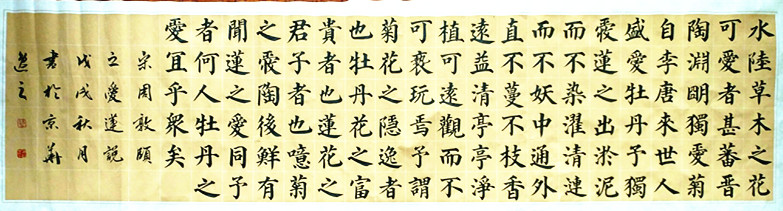 水陸草木之花
可愛者甚蕃晋
陶淵眀獨愛菊
自李唐來世人
盛愛牡丹予獨
愛蓮之出淤泥
而不染濯清漣
而不妖中通外
直不蔓不枝香
遠益清亭亭淨
植可遠觀而不
可褻玩焉予謂
菊花之隱逸者
也牡丹花之富
貴者也蓮花之
君子者也噫菊
之愛陶後鮮有
聞蓮之愛同予
者何人牡丹之
愛冝乎衆矣
宋周敦頤
之愛蓮說
戊戌秋月
書於京華